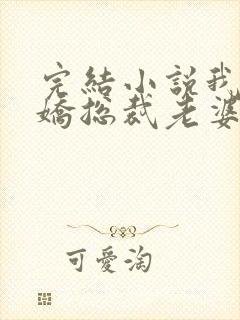 完結小説我
嬌總裁老婆
可愛淘